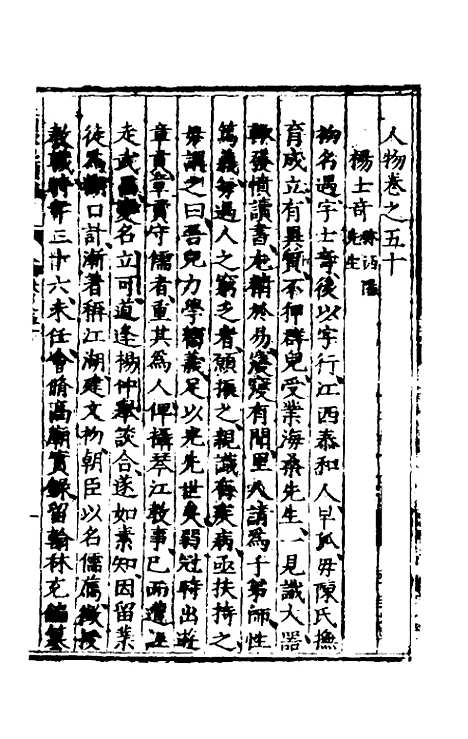 人物卷之五十
楊士奇
先生
名遇字士奇後以字行江西泰和人早孤母陳氏撫
育成立有異質不狎群兒受業海桑先生一見識大器
發憤讀書尤精於易寖寖有聞里人請為子弟師性
篤義每遇人之窮乏者願振之親識有疾病亟扶持之
母謂之曰吾兒力學篤義足以光先世矣弱冠時出遊
章貢章貢守儒者重其為人俾攝琴江教事已而遭
走武昌變名立可道逢楊仲舉談合遂如素知因留業
徒為口計漸著稱江湖建文初朝臣以名儒薦徵授
教職時年三十六未任會脩高廟實錄留翰林充編纂